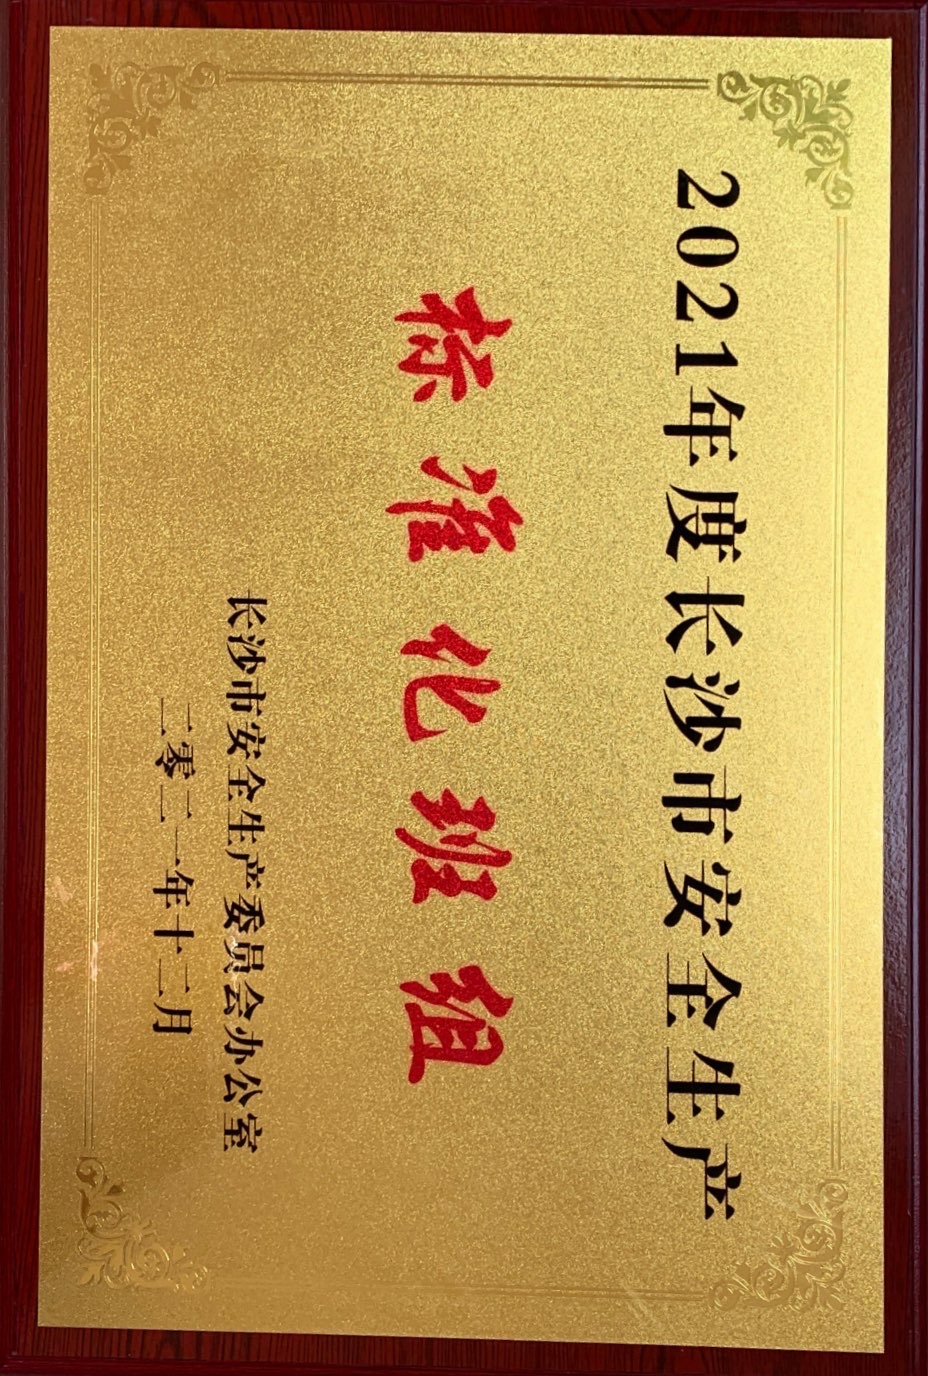 2021年度长沙市安全生产
标准化班组
长沙市安全生产委员会办公室
二零二一年十二月